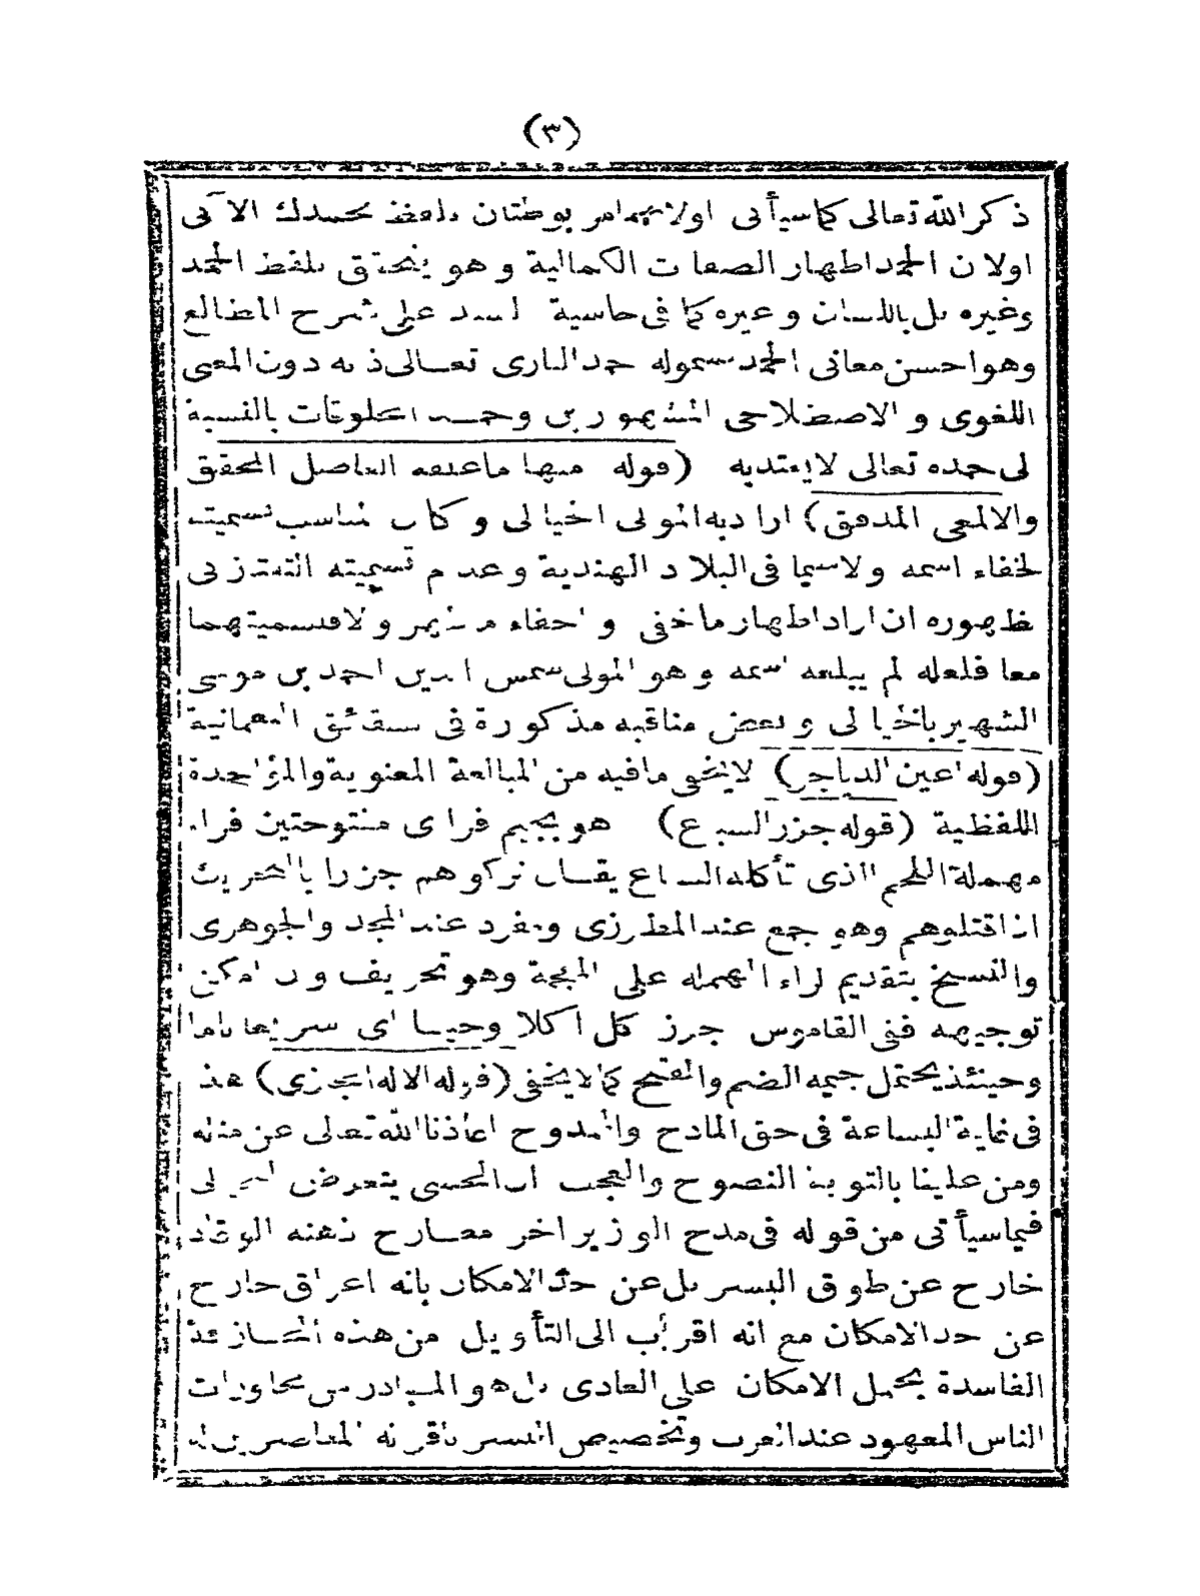 (٣)
ذكر الله تعالى كما سيأتى اولانهما امر بوطئان بلفظ نحمدك الآتى
اولان الحمد اظهار الصفات الكمالية وهو يتحقق بلفظ الحمد
وغيره بل باللسان وغيره كما فى حاشية السيد على شرح المطالع
وهو احسن معانى الحمد لشموله حمد البارى تعالى ذاته دون المعنى
اللغوى والاصطلاحى المشهورين وحمد المخلوقات بالنسبة
لى حمده تعالى لا يعتد به (قوله منها ما علقه الفاضل المحقق
والالمعى المدقق) اراد به المولى الخيالى وكان مناسب تسميته
لخفاء اسمه ولا سيما فى البلاد الهندية وعدم تسميته التفتزنى
ظهوره ان اراد اظهار ما خفى و اخفاء ما ظهر ولا فتسميتهما
معا فلعله لم يبلغه اسمه وهو المولى شمس الدين احمد بن موسى
الشهير باخيالى وبعض مناقبه مذكورة فى شقائق النعمانية
(قوله اعين الدياجر) لا يخفى ما فيه من المبالغة المعنوية والمؤاخذة
اللفظية (قوله جزر السبع) هو بجيم فزاى مفتوحتين فراء
مهملة اللحم الذى تأكله السباع يقال تركوهم جزرا بالتحريك
اذا قتلوهم وهو جمع عند المطرزى ومفرد عند المجد والجوهرى
والنسخ بتقديم لراء المهملة على المعجمة وهو تحريف وان امكن
توجيهه ففى القاموس جرز اكل اكلا وحيا اى سريعا
وحينئذ يحتمل جيمه الضم والفتح كما لا يخفى (قوله الاله المجازى) هذ
فى غاية البشاعة فى حق المادح والممدوح اعاذنا الله تعالى عن مثله
ومن علينا بالتوبة النصوح والعجب ان المحشى يتعرض لى
فيما سيأتى من قوله فى مدح الوزير اخر معارج ذهنه الوقاد
خارج عن طوق البشر بل عن حد الامكان بانه اعراق خارج
عن حد الامكان مع انه اقرب الى التأويل من هذه المجازفة
الفاسدة بحمل الامكان على العادى بل هو المتبادر من محاورات
الناس المعهود عند العرب وتخصيص البشر باقرانه المعاصرين له